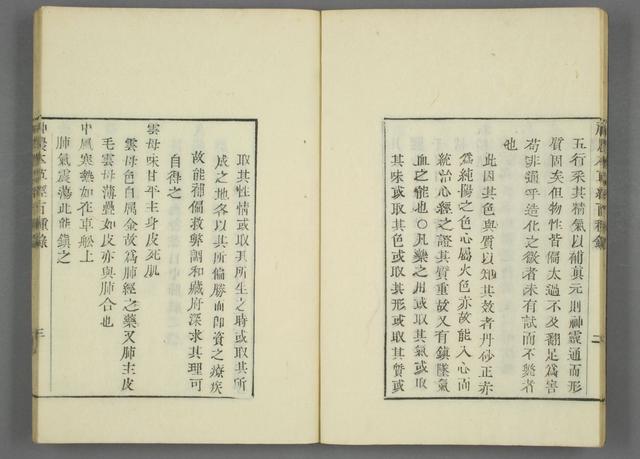 五行采其精氣以補眞元則神靈通而形
質固矣但物性皆偏太過不及翻足爲害
苟非通乎造化之微者未有試而不斃者
也
此因其色與質以知其效者丹砂正赤
爲純陽之色心屬火色赤故能入心而
統治心經之證其質重故又有鎭墜氣
血之能也〇凡藥之用或取其氣或取
其味或取其色或取其形或取其質或
神農本草經百種錄
二
取其性情或取其所生之時或取其所
成之地各以其所偏勝而卽資之療疾
故能補偏救弊調和藏府深求其理可
自得之
雲母味甘平主身皮死肌
雲母色白屬金故爲肺經之藥又肺主皮
毛雲母薄疊如皮亦與肺合也
中風寒熱如在車船上
肺氣震蕩此能鎭之
神農本草經百種錄
三